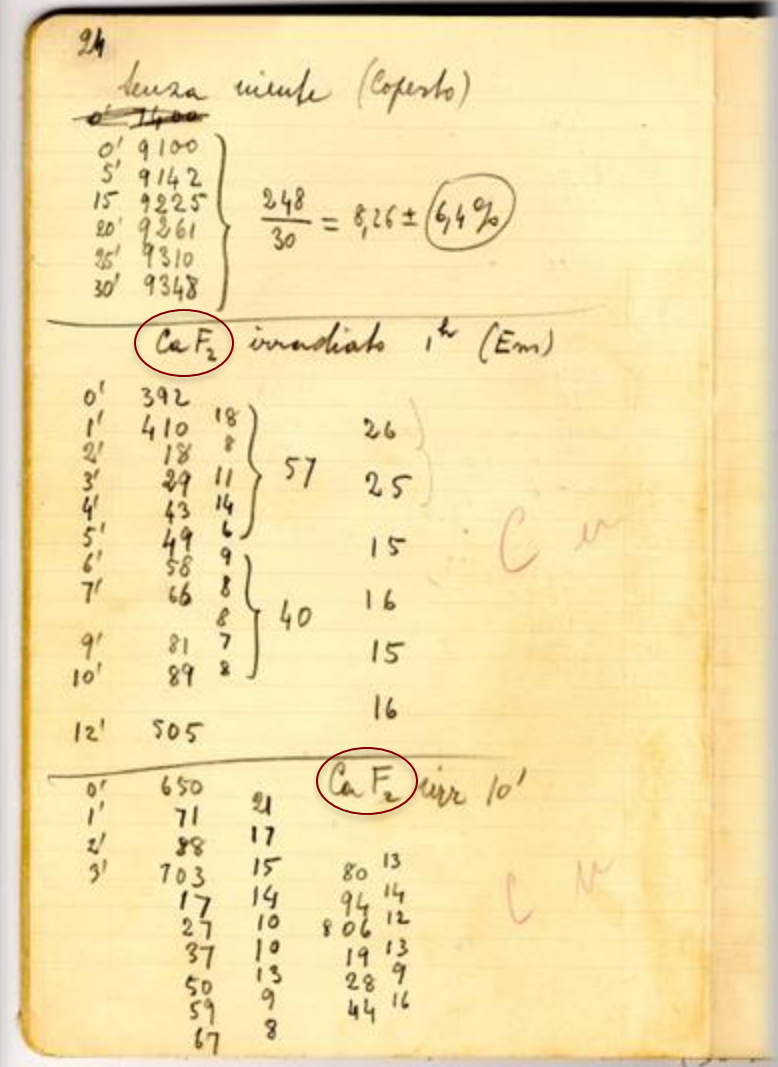 24
Senza niente (Coperto)
0' 9100
5' 9142
15 9225
20' 9261
25' 9310
30' 9348
248/30 = 8,26 ± 6,4%
CaF₂ irradiato 1ʰ (Em)
0' 392
1' 410 18
2' 18 8
3' 29 11
4' 43 14
5' 49 6
57
6' 58 9
7' 66 8
8
9' 81 7
10' 89 8
40
12' 505
26
25
15
16
15
16
CaF₂ irr 10'
0' 650
1' 71 21
2' 88 17
3' 703 15
17 14
27 10
37 10
50 13
59 9
67 8
80 13
94 14
806 12
19 13
28 9
44 16